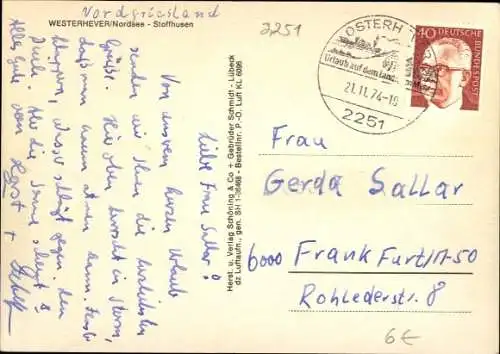 Vordfriesland
WESTERHEVER/Nordsee - Stoffhusen
2251
OSTERH
Urlaub auf dem Lande
21.11.74-18
2251
40 DEUTSCHE BUNDESPOST
Liebe Frau Sallar!
Von unserem kurzen Urlaub
senden wir Ihnen die herzlichsten
Grüße. Hier oben herrscht ein Sturm,
daß man kaum atmen kann. Fenster
klappern, Wasser schlägt gegen den
Deich. Aber die Sonne scheint
Alles Gute von Horst +
Herst. u. Verlag Schöning & Co + Gebrüder Schmidt - Lübeck
dz Luftaufn., gen. SH 1-36468 - Bestellnr. P.-O. Luft KL 6096
Frau
Gerda Sallar
6000 Frankfurt/M-50
Rohlederstr. 8
6€